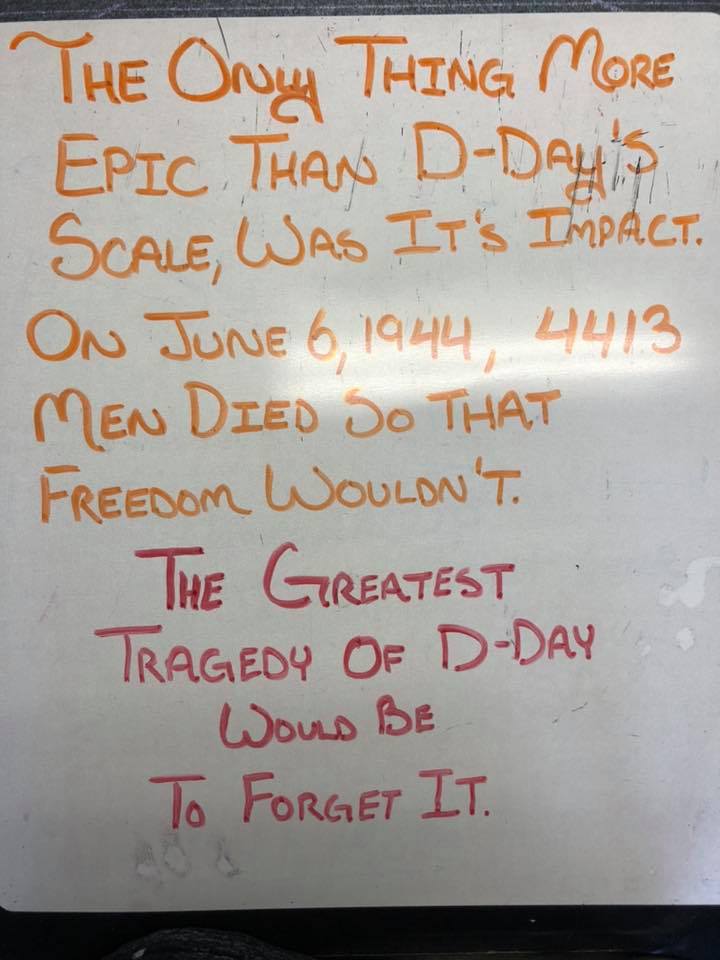 The Only Thing More
Epic Than D-Day's
Scale, Was It's Impact.
On June 6, 1944, 4413
Men Died So That
Freedom Wouldn't.
The Greatest
Tragedy Of D-Day
Would Be
To Forget It.